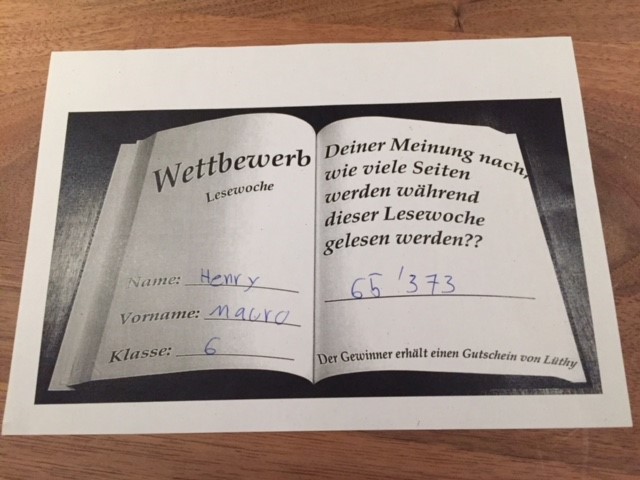 Wettbewerb
Lesewoche
Name: Henry
Vorname: Mauro
Klasse: 6
Deiner Meinung nach,
wie viele Seiten
werden während
dieser Lesewoche
gelesen werden??
65'373
Der Gewinner erhält einen Gutschein von Lüthy